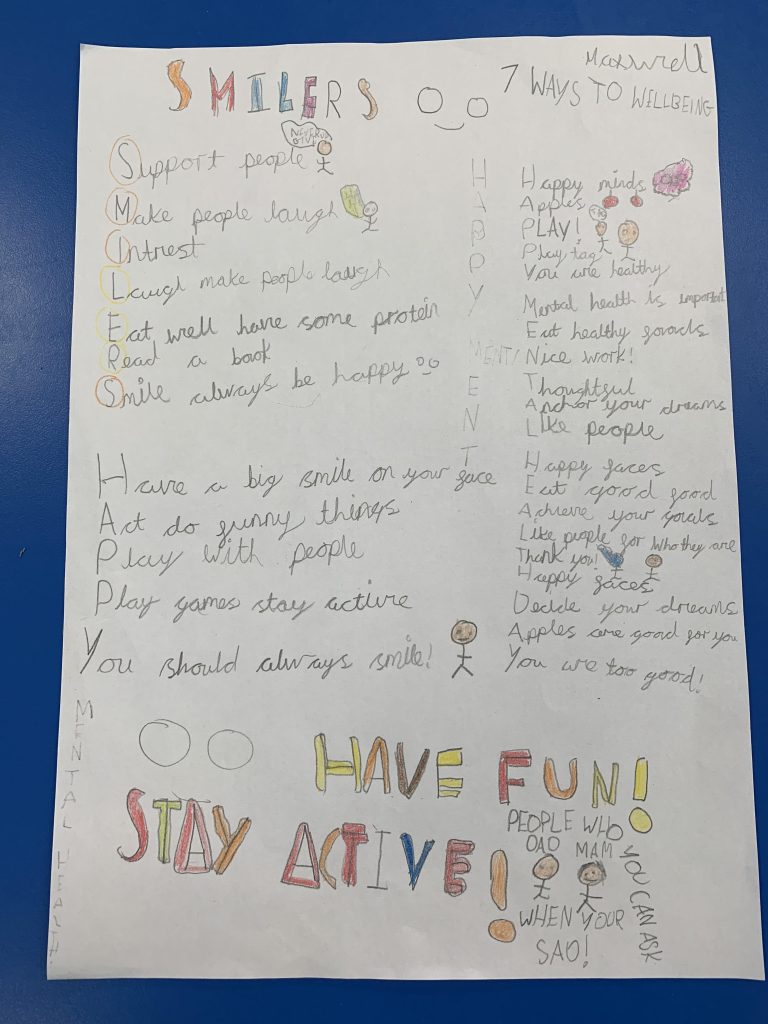 SMILERS
Maxwell
7 WAYS TO WILLBEING
NEVER GIVE
Support people
Make people laugh
Intrest
Laugh make people laugh
Eat well have some protein
Read a book
Smile always be happy
HAPPY
MENT
ENT
Happy minds
Apples
PLAY!
Play tag
You are healthy
Mental health is important
Eat healthy goods
Nice work!
Thoughtful
Anchor your dreams
Like people
Happy faces
Eat good good
Achieve your goals
Like people for who they are
Thank you!
Happy faces
Decide your dreams
Apples are good for you
You are too good!
Have a big smile on your face
Act do funny things
Play with people
Play games stay active
You should always smile!
MENTAL HEALTH
HAVE FUN!
STAY ACTIVE!
PEOPLE WHO
DAD MAM
YOU CAN ASK
WHEN YOUR
SAD!